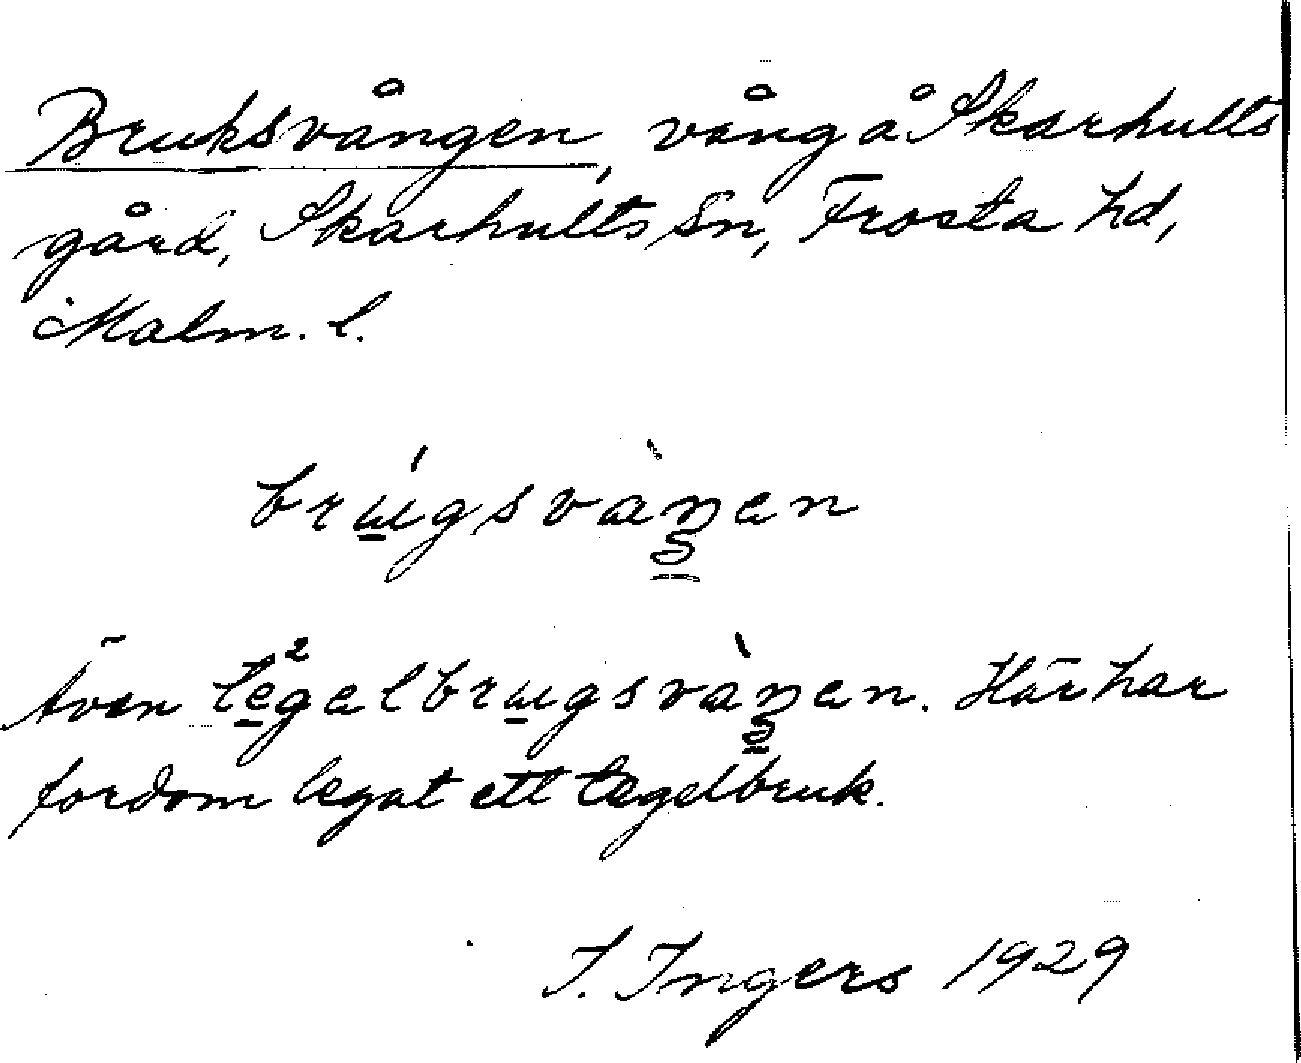 Bruksvången, vång å Skarhults
gård, Skarhults sn, Frosta hd,
Malm. l.
brúgsvàŋen
Även tegelbrugsvàŋen. Här har
fordom legat ett tegelbruk.
I. Ingers 1929